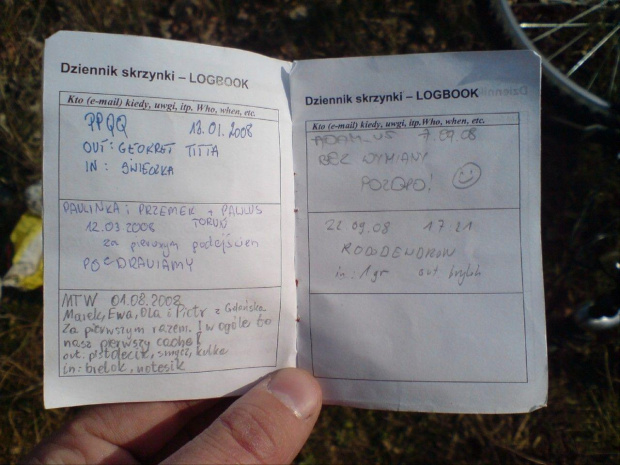 Dziennik skrzynki – LOGBOOK
Kto (e-mail) kiedy, uwgi, itp. Who, when, etc.
PPQQ 13.01.2008
OUT: GEOKRET TITTA
IN: ŚWIECZKA
PAULINKA i PRZEMEK + PAWLUS
12.03.2008 TORUŃ
za pierwszym podejściem
POZDRAWIAMY
MTW 01.08.2008
Marek, Ewa, Ola i Piotr z Gdańska
Za pierwszym razem. I w ogóle to
nasz pierwszy cache!
out: pistolecik, smycz, kulka
in: bielok, notesik
Dziennik skrzynki – LOGBOOK
Kto (e-mail) kiedy, uwgi, itp. Who, when, etc.
ADAM_US 7.09.08
BEZ WYMIANY
POZDRO!
22.09.08 17:21
RODODENDRON
in: 1gr out brylok